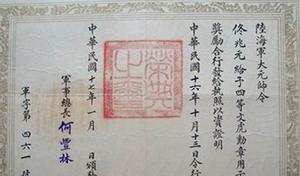 陸海軍大元帥令
佟兆元給予四等文虎勳章用示
獎勵合行發給執照以資證明
中華民國十六年十月十三日令行
榮典之璽
中華民國十七年一月 日頒
軍事總長 何豐林
軍字第四六一號